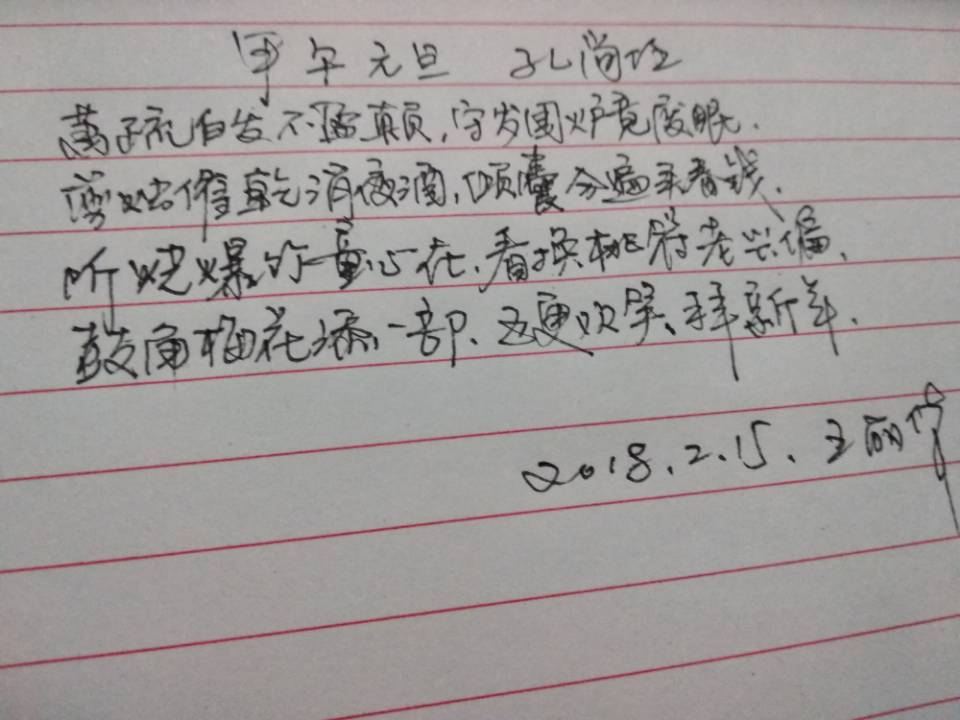 甲午元旦 孔尚任
萧疏白发不盈颠,守岁围炉竟废眠.
剪烛催乾消夜酒,倾囊分遍买春钱.
听烧爆竹童心在,看换桃符老兴偏.
鼓角梅花添一部,五更欢笑拜新年.
2018.2.15.王